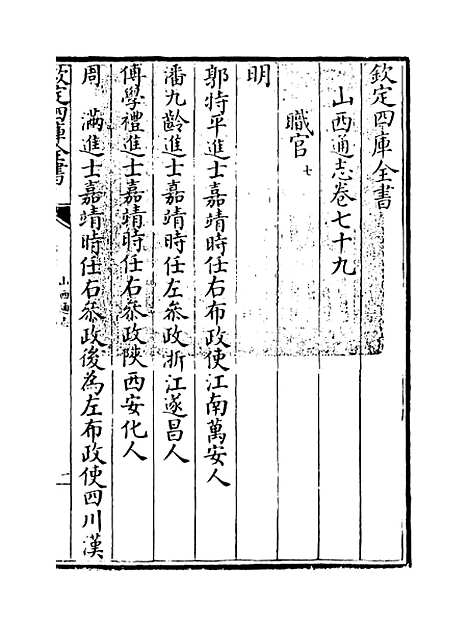 欽定四庫全書
山西通志卷七十九
職官七
明
郭持平進士嘉靖時任右布政使江南萬安人
潘九齡進士嘉靖時任左叅政浙江遂昌人
傅學禮進士嘉靖時任右叅政陝西安化人
周滿進士嘉靖時任右叅政後為左布政使四川漢
欽定四庫全書
山西通志